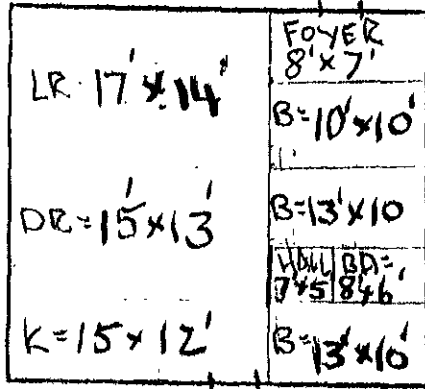 LR 17' x 14'
DR = 15' x 13'
K = 15 x 12'
FOYER
8' x 7'
B = 10' x 10'
B = 13' x 10
HALL
7x5
BA =
8x6'
B = 13' x 10'